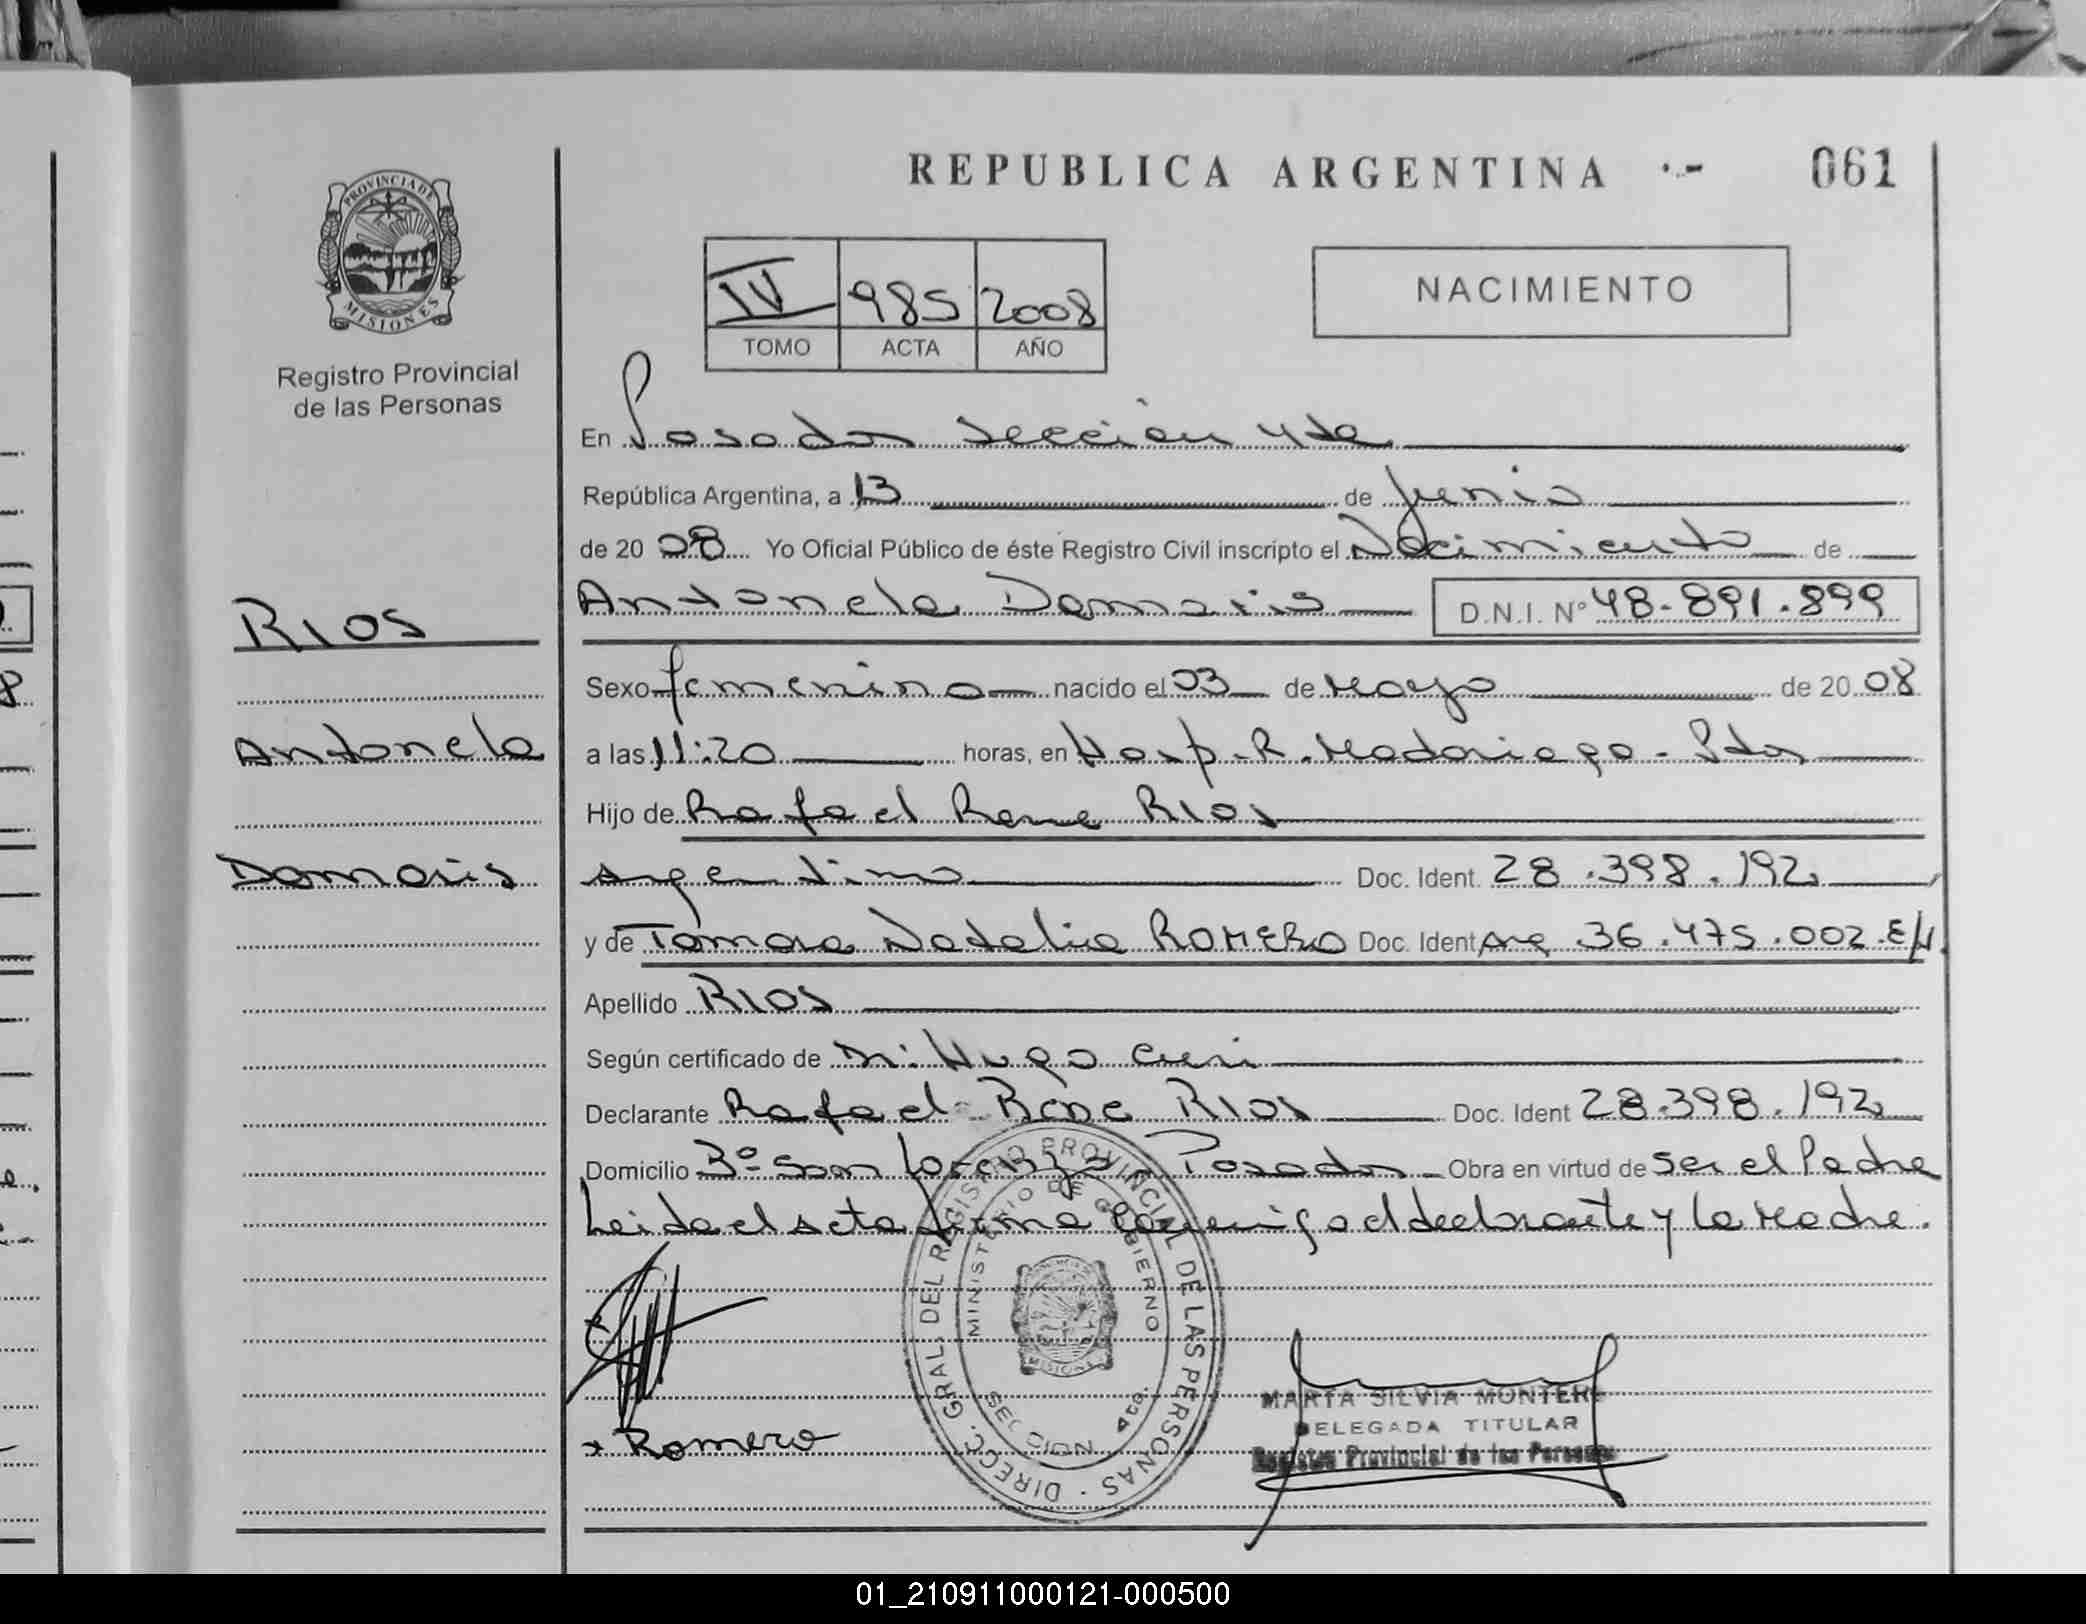 REPUBLICA ARGENTINA .- 061
PROVINCIA DE
MISIONES
Registro Provincial
de las Personas
IV 985 2008
TOMO ACTA AÑO
NACIMIENTO
En Posadas Sección 4ta
República Argentina, a 13 de junio
de 2008 Yo Oficial Público de éste Registro Civil inscripto el Nacimiento de
Antonela Damaris D.N.I. Nº 48.891.899
RIOS
Antonela
Damaris
Sexo femenino nacido el 03 de Mayo de 2008
a las 11:20 horas, en Hosp. R. Madariaga - Pdas
Hijo de Rafael Rene RIOS
Argentino Doc. Ident. 28.398.192
y de Tamara Natalia ROMERO Doc. Ident Arg 36.475.002.E/
Apellido RIOS
Según certificado de Dr. Hugo
Declarante Rafael Rene RIOS Doc. Ident 28.398.192
Domicilio Bº San Lorenzo Posadas Obra en virtud de ser el Padre
Leida el acta firma conmigo el declarante y la Madre.
DIRECC. GRAL. DEL REGISTRO PROVINCIAL DE LAS PERSONAS
MINISTERIO DE GOBIERNO
MISIONES
SECCION 4ta.
x Romero
MARTA SILVIA MONTER
DELEGADA TITULAR
Registro Provincial de las Personas
01_210911000121-000500